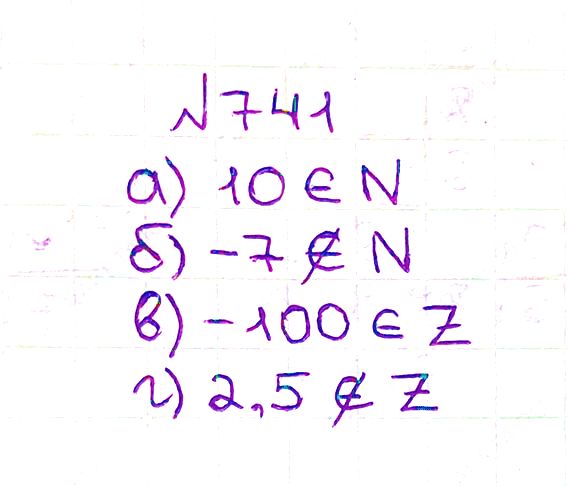 №741
а) 10 ∈ N
б) -7 ∉ N
в) -100 ∈ Z
г) 2,5 ∉ Z